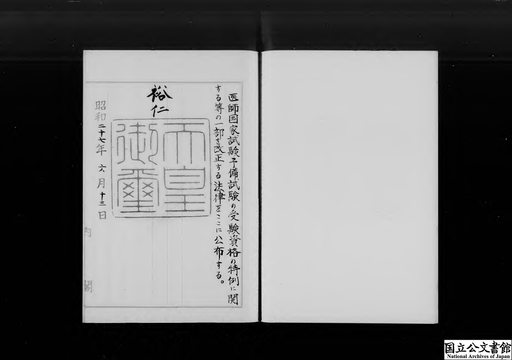 医師国家試験予備試験の受験資格の特例に関
する等の一部を改正する法律をここに公布する。
裕仁
天皇
御璽
昭和二十七年六月十三日
内閣
国立公文書館
National Archives of Japan